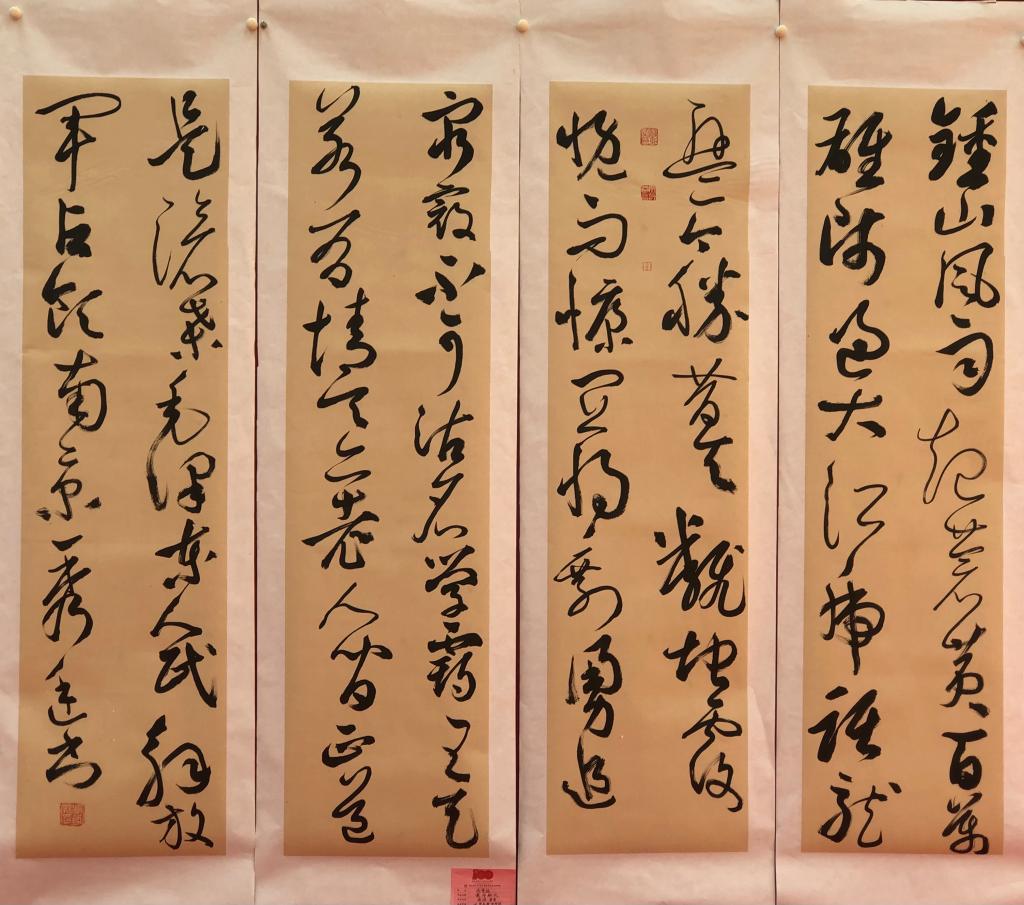 鍾山風雨起蒼黄百萬
雄師過大江虎踞龍
盤今勝昔天翻地覆
慨而慷宜将剩勇追
窮寇不可沽名学霸王天
若有情天亦老人間正道
是滄桑毛澤東人民解放
軍占領南京秀書
100